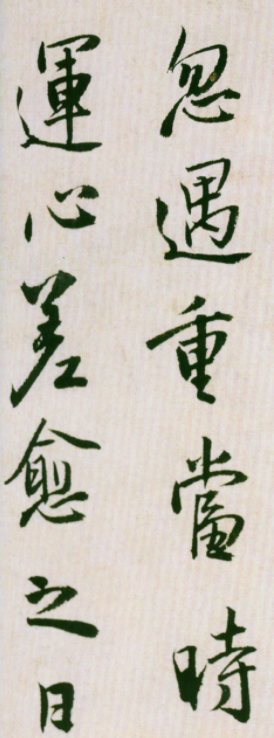 忽遇重當時
運心差愈之日